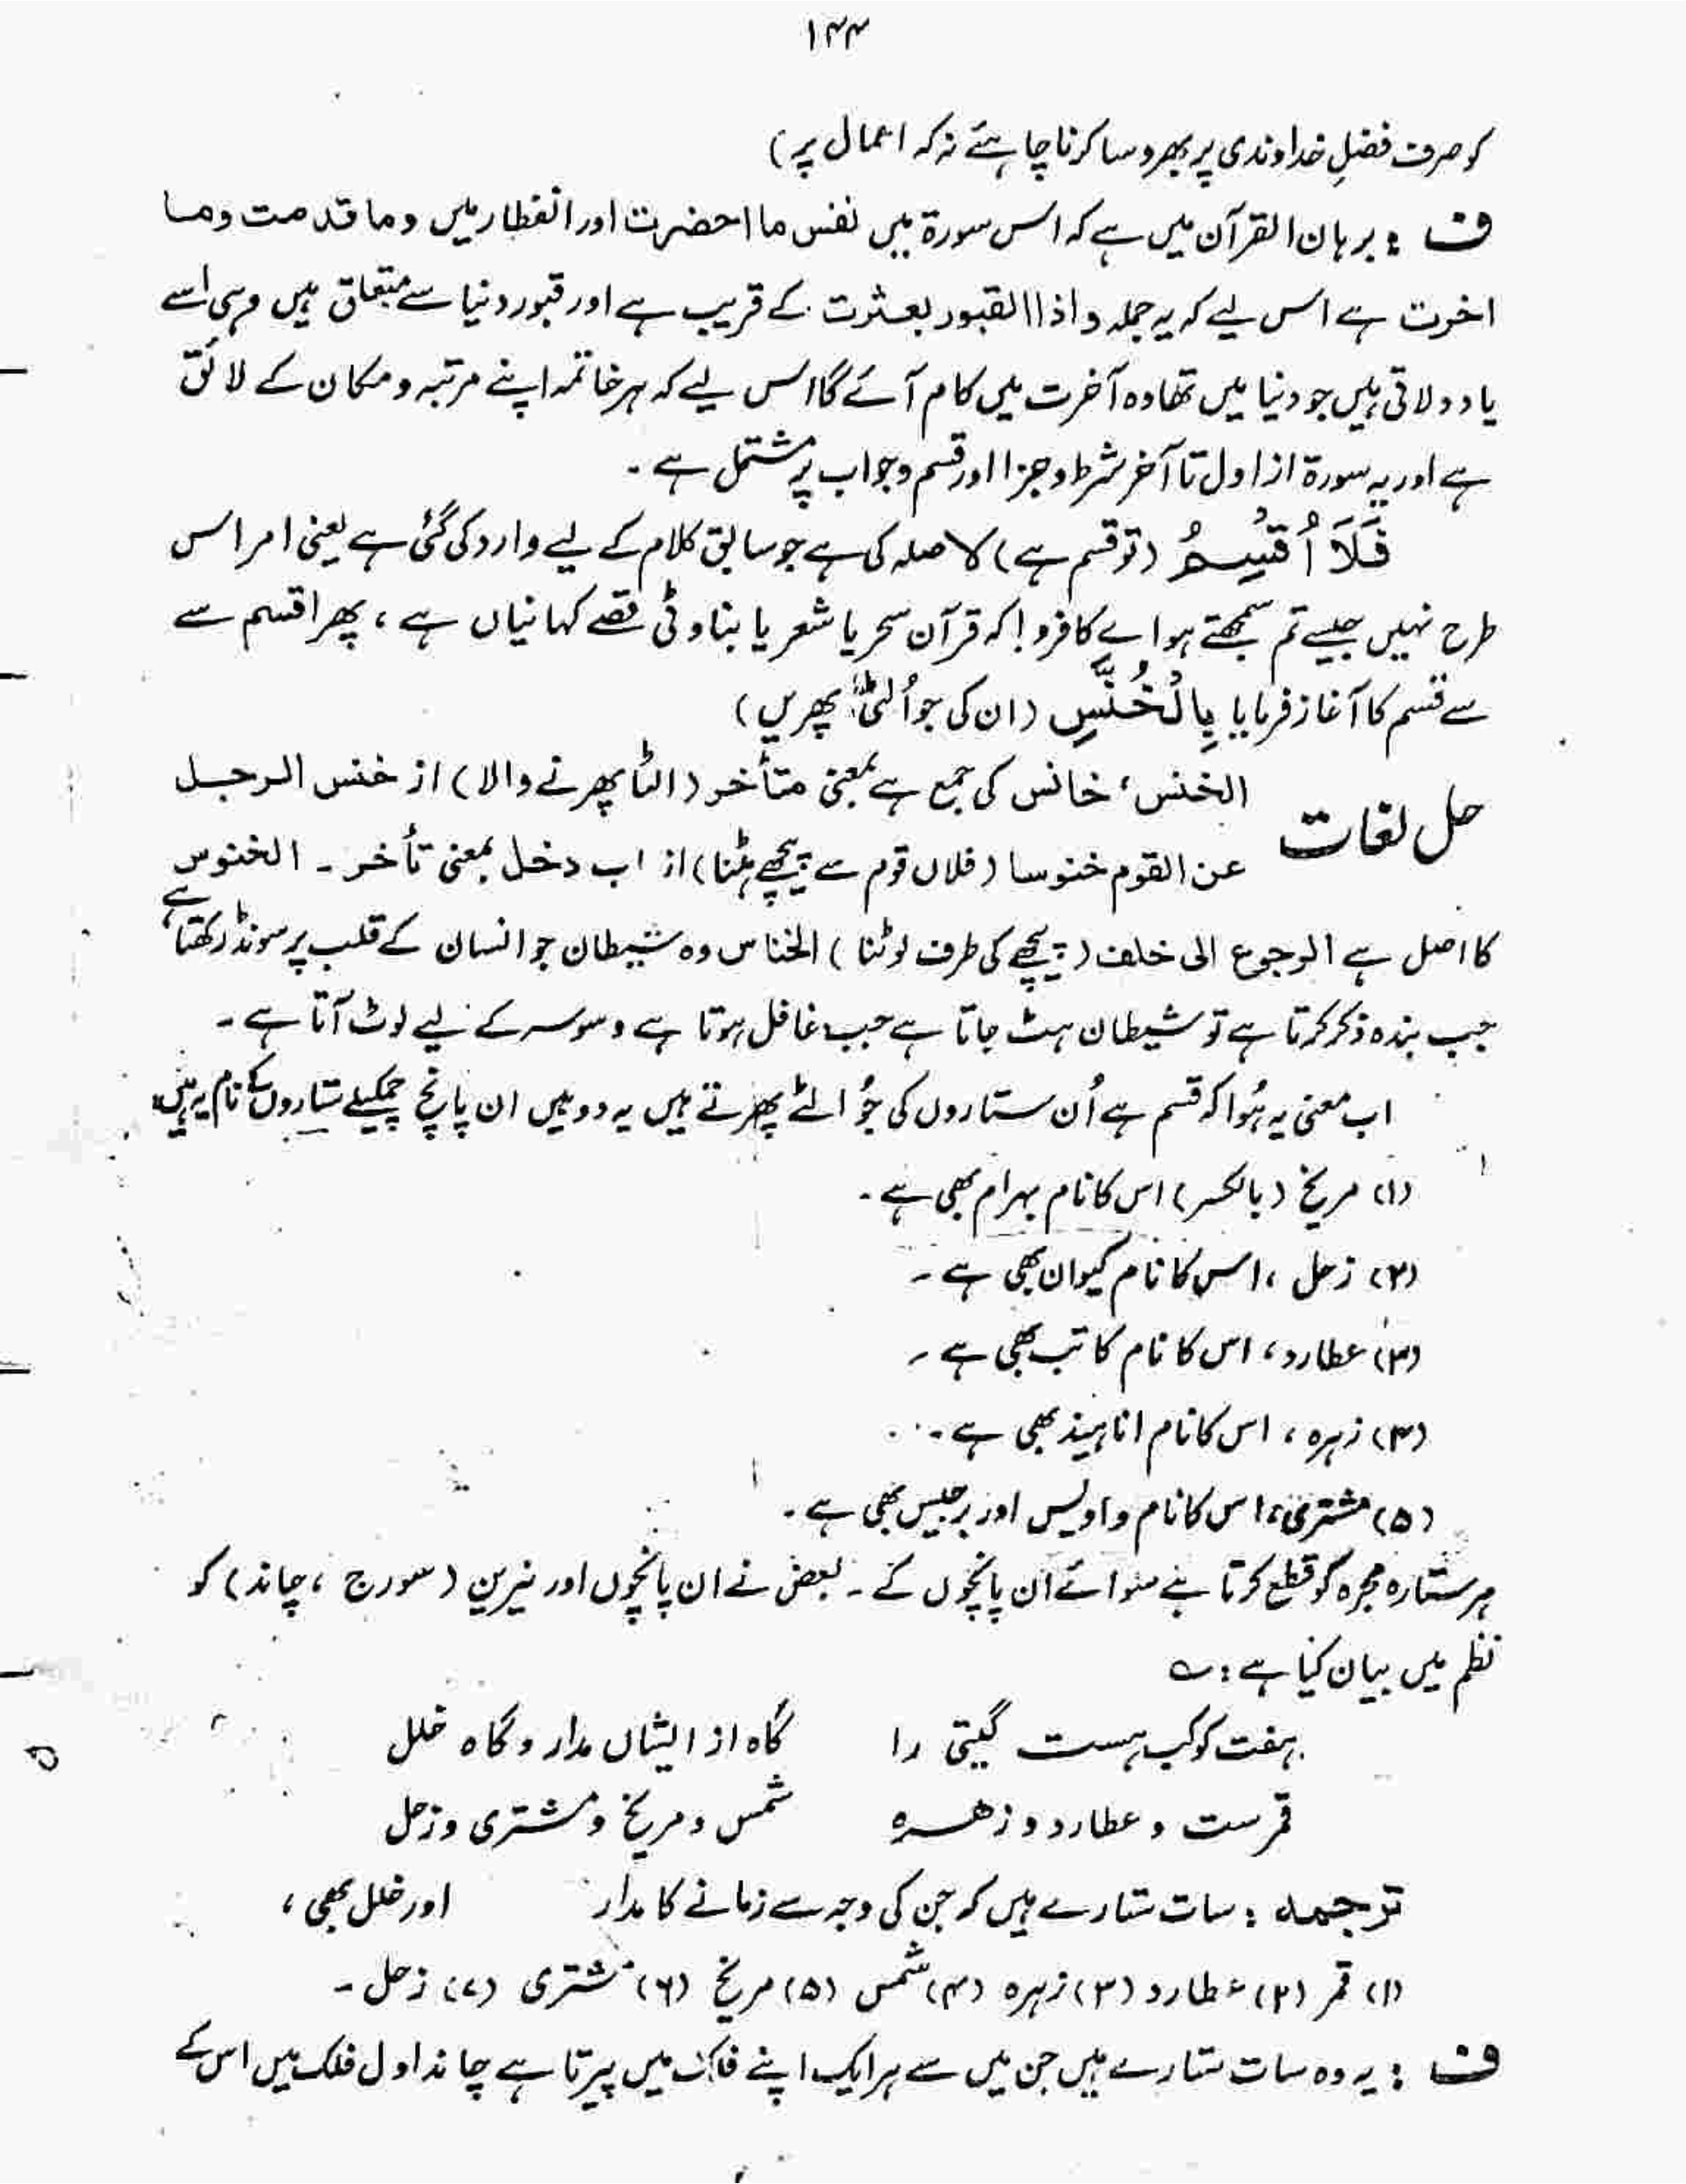 ۱۴۴
کو صرف فضلِ خداوندی پر بھروسا کرنا چاہئے نہ کہ اعمال پر)
ف : برہان القرآن میں ہے کہ اس سورۃ میں نفس ما احضرت اور انفطار میں وما قدمت وما
اخرت ہے اس لیے کہ یہ جملہ واذا القبور بعثرت کے قریب ہے اور قبور دنیا سے متعلق ہیں وہی اسے
یاد دلاتی ہیں جو دنیا میں تھا وہ آخرت میں کام آئے گا اس لیے کہ ہر خاتمہ اپنے مرتبہ و مکان کے لائق
ہے اور یہ سورۃ از اول تا آخر شرط و جزا اور قسم و جواب پر مشتمل ہے ۔
فَلَآ اُقْسِمُ (تو قسم ہے) لا صلہ کی ہے جو سابق کلام کے لیے وارد کی گئی ہے یعنی امر اس
طرح نہیں جیسے تم سمجھتے ہو اے کافرو! کہ قرآن سحر یا شعر یا بناوٹی قصے کہانیاں ہے ، پھر اقسم سے
سے قسم کا آغاز فرمایا بِالْخُنَّسِ (ان کی جو اُلٹی پھریں)
حل لغات
الخنس ، خانس کی جمع ہے بمعنی متأخر (الٹا پھرنے والا) از خنس الرجل
عن القوم خنوسا (فلاں قوم سے پیچھے ہٹنا) از اب دخل بمعنی تأخر ۔ الخنوس
کا اصل ہے الرجوع الی خلف (پیچھے کی طرف لوٹنا) الخناس وہ شیطان جو انسان کے قلب پر سونڈ رکھتا ہے
جب بندہ ذکر کرتا ہے تو شیطان ہٹ جاتا ہے جب غافل ہوتا ہے وسوسہ کے لیے لوٹ آتا ہے ۔
اب معنی یہ ہُوا کہ قسم ہے اُن ستاروں کی جو الٹے پھرتے ہیں یہ دو ہیں ان پانچ چمکیلے ستاروں کے نام یہ ہیں :
(۱) مریخ (بالکسر) اس کا نام بہرام بھی ہے ۔
(۲) زحل ، اس کا نام کیوان بھی ہے ۔
(۳) عطارد ، اس کا نام کاتب بھی ہے ۔
(۴) زہرہ ، اس کا نام اناہیذ بھی ہے ۔
(۵) مشتری ، اس کا نام واویس اور برجیس بھی ہے ۔
ہر ستارہ مجرہ کو قطع کرتا ہے سوائے ان پانچوں کے ۔ بعض نے ان پانچوں اور نیرین (سورج ، چاند) کو
نظم میں بیان کیا ہے : ؎
ہفت کوکب ہست گیتی را گاہ از ایشاں مدار و گاہ خلل
قمرست و عطارد و زھرہ شمس و مریخ و مشتری و زحل
ترجمہ : سات ستارے ہیں کہ جن کی وجہ سے زمانے کا مدار اور خلل بھی ،
(۱) قمر (۲) عطارد (۳) زہرہ (۴) شمس (۵) مریخ (۶) مشتری (۷) زحل ۔
ف : یہ وہ سات ستارے ہیں جن میں سے ہر ایک اپنے فلک میں پیرتا ہے چاند اول فلک میں اس کے